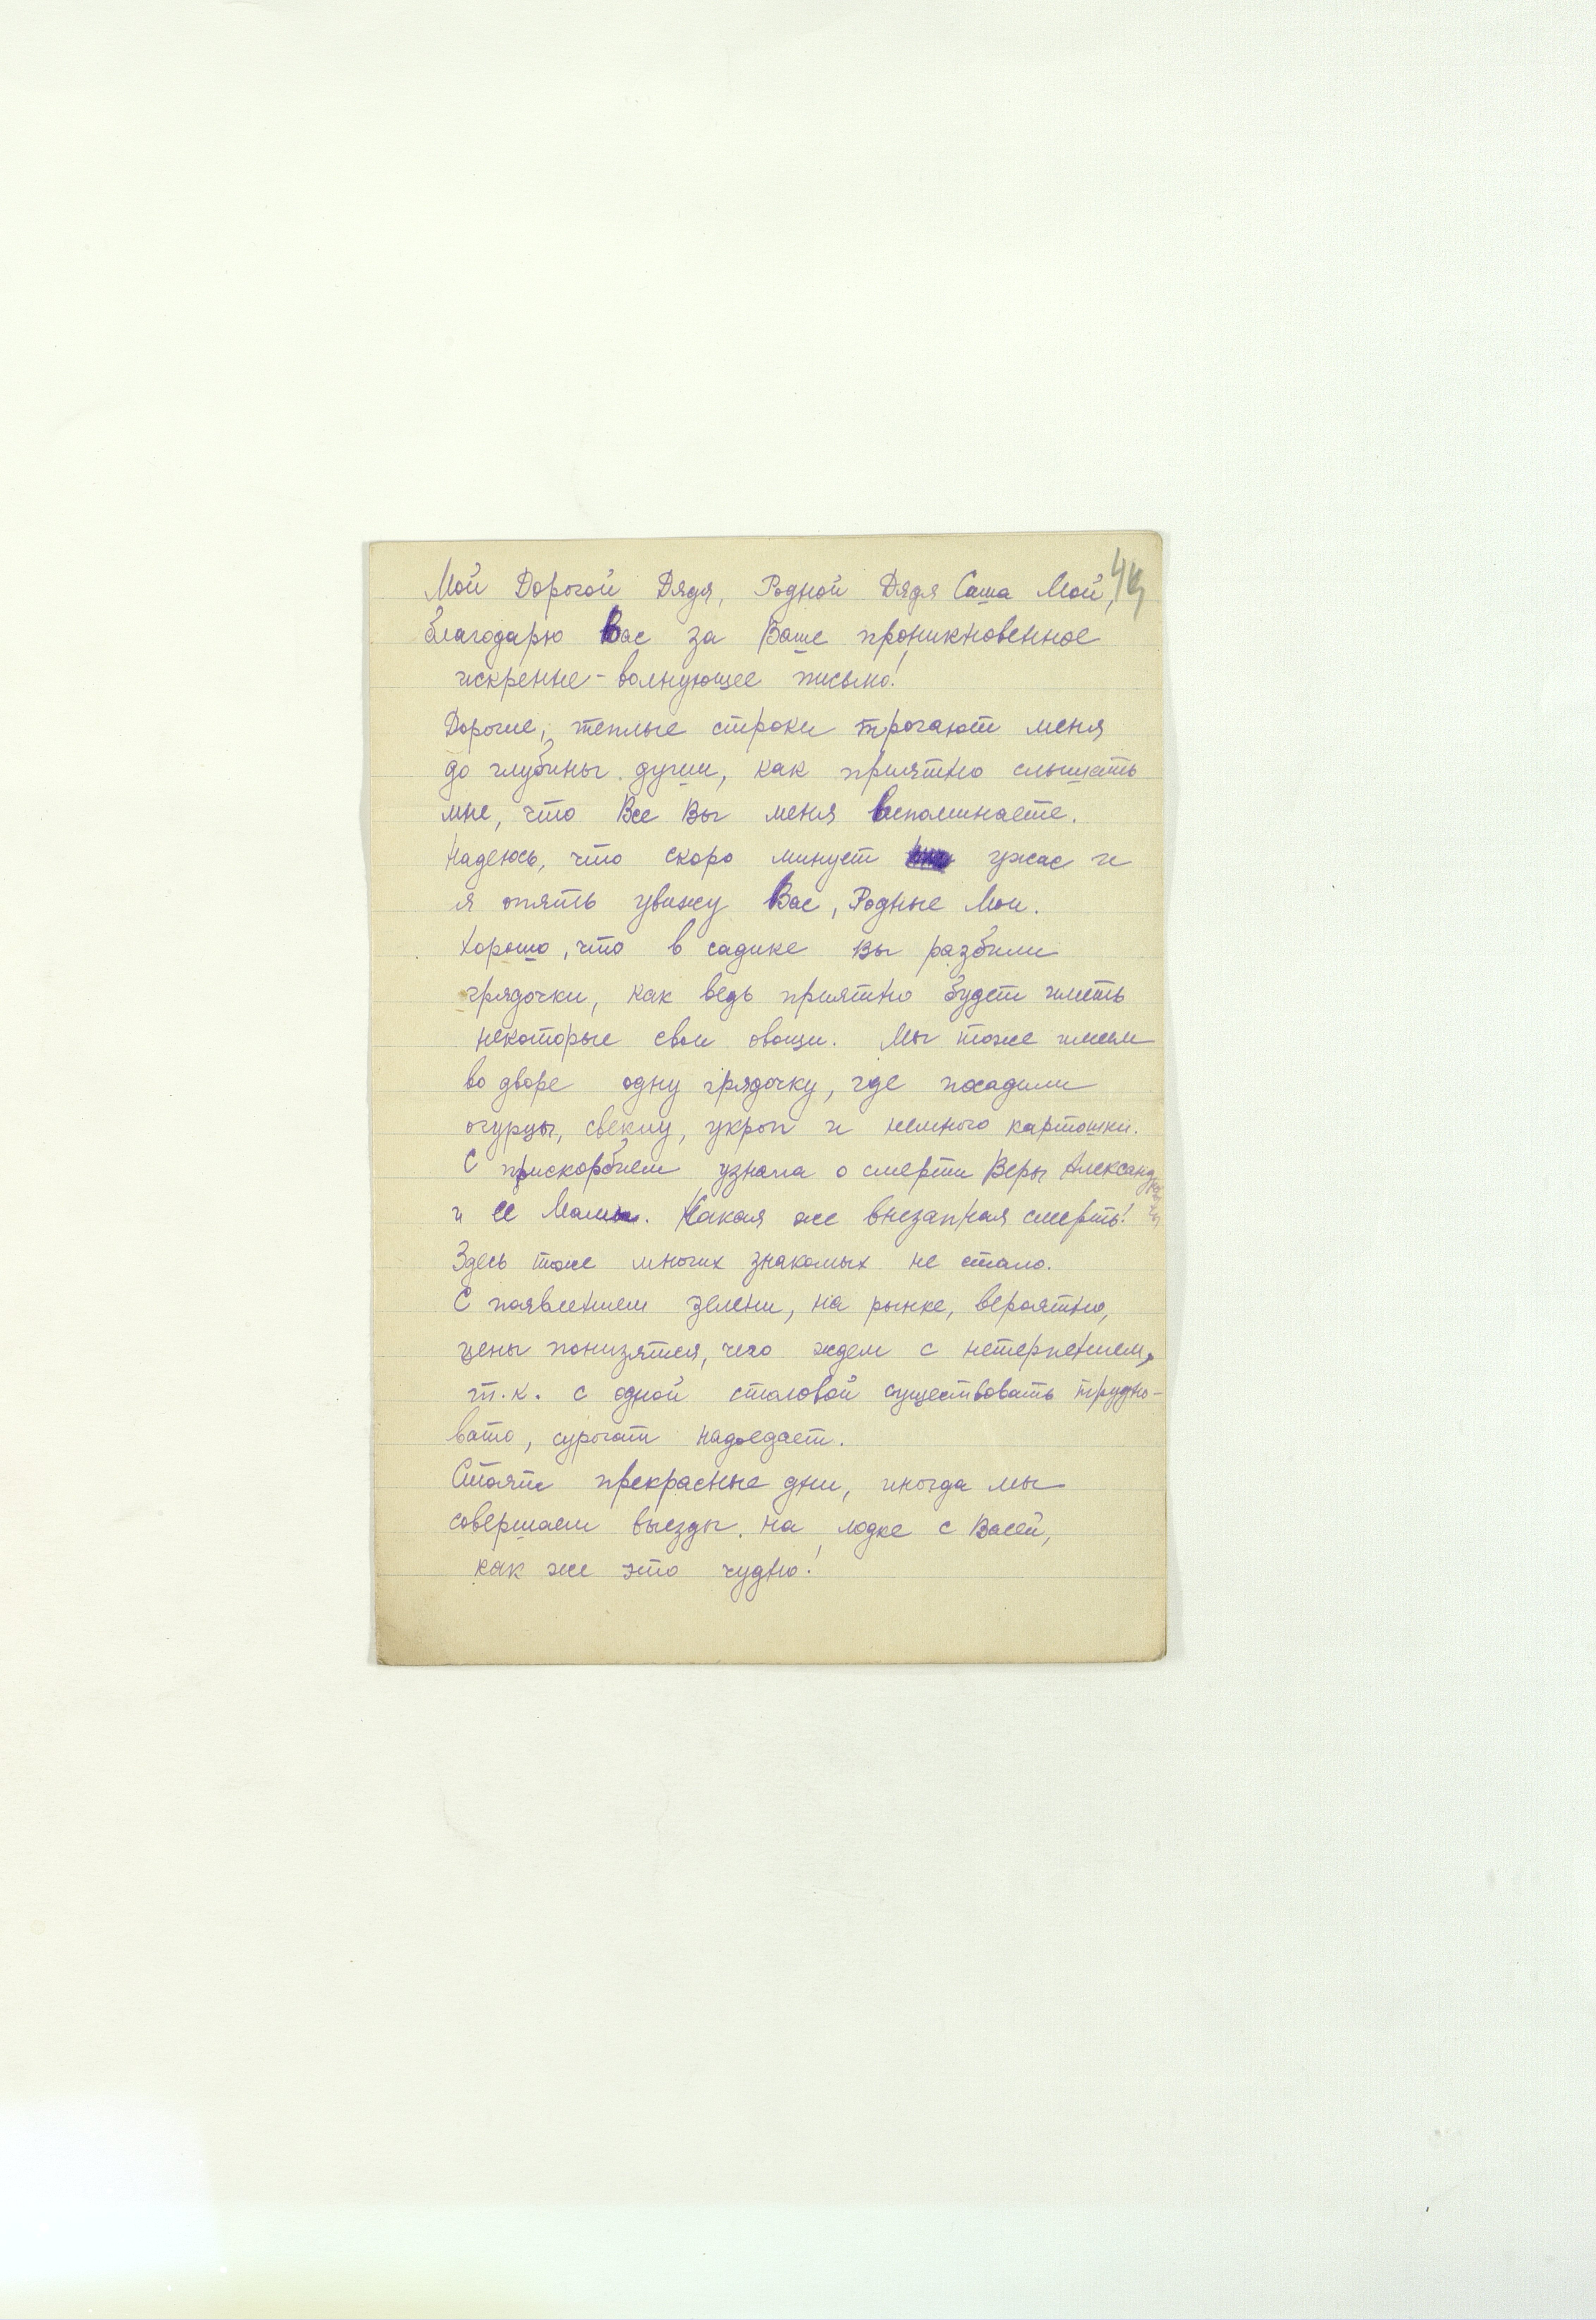 Мой Дорогой Дядя, Родной Дядя Саша Мой,
благодарю Вас за Ваше проникновенное
искренне-волнующее письмо!
Дорогие, теплые строки трогают меня
до глубины души, как приятно слышать
мне, что Все Вы меня вспоминаете.
Надеюсь, что скоро минует ужас и
я опять увижу Вас, Родные Мои.
Хорошо, что в садике Вы разбили
грядочки, как ведь приятно будет иметь
некоторые свои овощи. Мы тоже имеем
во дворе одну грядочку, где посадили
огурцы, свеклу, укроп и немного картошки.
С прискорбием узнала о смерти Веры Александр
и ее Мамы. Какая же внезапная смерть!
Здесь тоже многих знакомых не стало.
С появлением зелени, на рынке, вероятно,
цены понизятся, чего ждем с нетерпением,
т.к. с одной столовой существовать трудно-
вато, сурогат надоедает.
Стоят прекрасные дни, иногда мы
совершаем выезды на лодке с Васей,
как же это чудно!